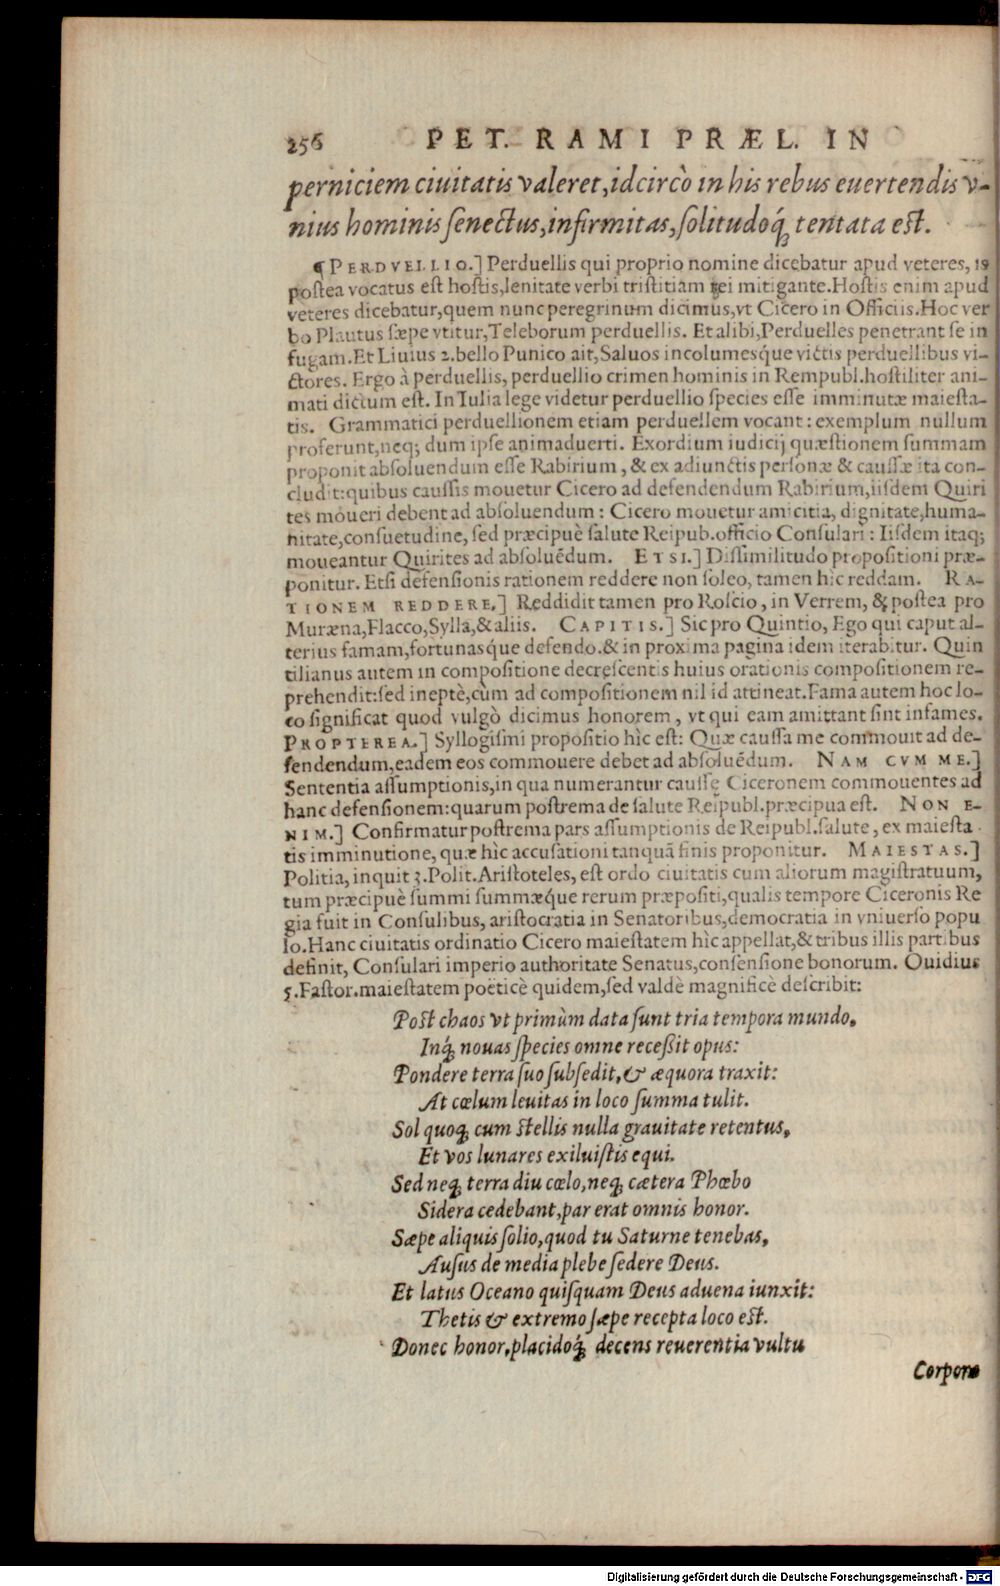 256 PET. RAMI PRÆL. IN
perniciem ciuitatis valeret,idcircò in his rebus euertendis v-
nius hominis ſenectus,infirmitas,ſolitudoq́; tentata eſt.
¶PERDVELLIO.] Perduellis qui proprio nomine dicebatur apud veteres, is
poſtea vocatus eſt hoſtis,lenitate verbi triſtitiam rei mitigante.Hoſtis enim apud
veteres dicebatur,quem nunc peregrinum dicimus,vt Cicero in Officiis.Hoc ver
bo Plautus ſæpe vtitur,Teleborum perduellis. Et alibi,Perduelles penetrant ſe in
fugam.Et Liuius 2.bello Punico ait,Saluos incolumesque victis perduellibus vi-
ctores. Ergo à perduellis, perduellio crimen hominis in Rempubl.hoſtiliter ani-
mati dictum eſt. In Iulia lege videtur perduellio ſpecies eſſe imminutæ maieſta-
tis. Grammatici perduellionem etiam perduellem vocant: exemplum nullum
proferunt,neq; dum ipſe animaduerti. Exordium iudicij quæſtionem ſummam
proponit abſoluendum eſſe Rabirium, & ex adiunctis perſonæ & cauſſæ ita con-
cludit:quibus cauſſis mouetur Cicero ad defendendum Rabirium,iiſdem Quiri
tes moueri debent ad abſoluendum: Cicero mouetur amicitia, dignitate,huma-
nitate,conſuetudine, ſed præcipuè ſalute Reipub.officio Conſulari: Iiſdem itaq;
moueantur Quirites ad abſoluẽdum. ETSI.] Diſſimilitudo propoſitioni præ-
ponitur. Etſi defenſionis rationem reddere non ſoleo, tamen hic reddam. RA-
TIONEM REDDERE.] Reddidit tamen pro Roſcio, in Verrem, & poſtea pro
Muræna,Flacco,Sylla,& aliis. CAPITIS.] Sic pro Quintio, Ego qui caput al-
terius famam,fortunasque defendo.& in proxima pagina idem iterabitur. Quin
tilianus autem in compoſitione decreſcentis huius orationis compoſitionem re-
prehendit:ſed ineptè,cùm ad compoſitionem nil id attineat.Fama autem hoc lo-
co ſignificat quod vulgò dicimus honorem, vt qui eam amittant ſint infames.
PROPTEREA.] Syllogiſmi propoſitio hìc eſt: Quæ cauſſa me commouit ad de-
fendendum,eadem eos commouere debet ad abſoluẽdum. NAM CVM ME.]
Sententia aſſumptionis,in qua numerantur cauſſę Ciceronem commouentes ad
hanc defenſionem:quarum poſtrema de ſalute Reipubl.præcipua eſt. NON E-
NIM.] Confirmatur poſtrema pars aſſumptionis de Reipubl.ſalute, ex maieſta
tis imminutione, quæ hìc accuſationi tanquã finis proponitur. MAIESTAS.]
Politia, inquit 3.Polit.Ariſtoteles, eſt ordo ciuitatis cum aliorum magiſtratuum,
tum præcipuè ſummi ſummæque rerum præpoſiti,qualis tempore Ciceronis Re
gia fuit in Conſulibus, ariſtocratia in Senatoribus,democratia in vniuerſo popu
lo.Hanc ciuitatis ordinatio Cicero maieſtatem hìc appellat,& tribus illis partibus
definit, Conſulari imperio authoritate Senatus,conſenſione bonorum. Ouidius
5.Faſtor.maieſtatem poëticè quidem,ſed valdè magnificè deſcribit:
Poſt chaos vt primùm data ſunt tria tempora mundo,
Inq́; nouas ſpecies omne receßit opus:
Pondere terra ſuo ſubſedit,& æquora traxit:
At cœlum leuitas in loco ſumma tulit.
Sol quoq; cum ſtellis nulla grauitate retentus,
Et vos lunares exiluiſtis equi.
Sed neq; terra diu cœlo,neq; cætera Phœbo
Sidera cedebant,par erat omnis honor.
Sæpe aliquis ſolio,quod tu Saturne tenebas,
Auſus de media plebe ſedere Deus.
Et latus Oceano quiſquam Deus aduena iunxit:
Thetis & extremo ſæpe recepta loco eſt.
Donec honor,placidoq́; decens reuerentia vultu
Corpora
Digitalisierung gefördert durch die Deutsche Forschungsgemeinschaft - DFG